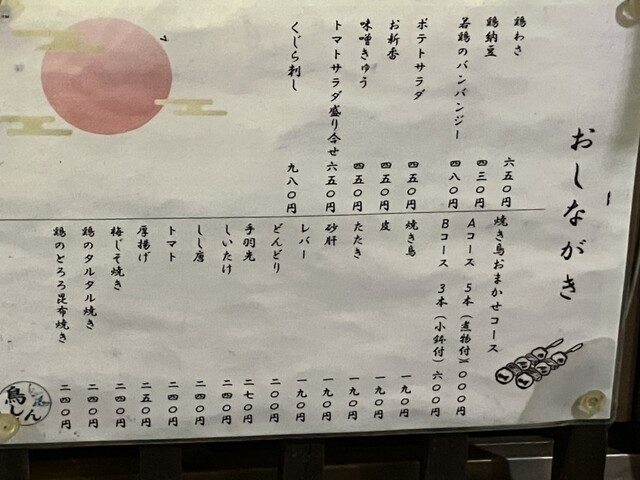 おしながき
鶏わさ 六五〇円
鶏納豆 四三〇円
若鶏のバンバンジー 四八〇円
ポテトサラダ 四五〇円
お新香 四五〇円
味噌きゅう 四五〇円
トマトサラダ盛り合せ 六五〇円
くじら刺し 九八〇円
焼き鳥おまかせコース
Aコース 5本(煮物付)一〇〇〇円
Bコース 3本(小鉢付)六〇〇円
焼き鳥 一九〇円
皮 一九〇円
たたき 一九〇円
砂肝 一九〇円
レバー 一九〇円
どんどり 二〇〇円
手羽先 二七〇円
しいたけ 二四〇円
しし唐 二四〇円
トマト 二四〇円
厚揚げ 二五〇円
梅じそ焼き 二四〇円
鶏のタルタル焼き 二四〇円
鶏のとろろ昆布焼き 二四〇円
鳥しん